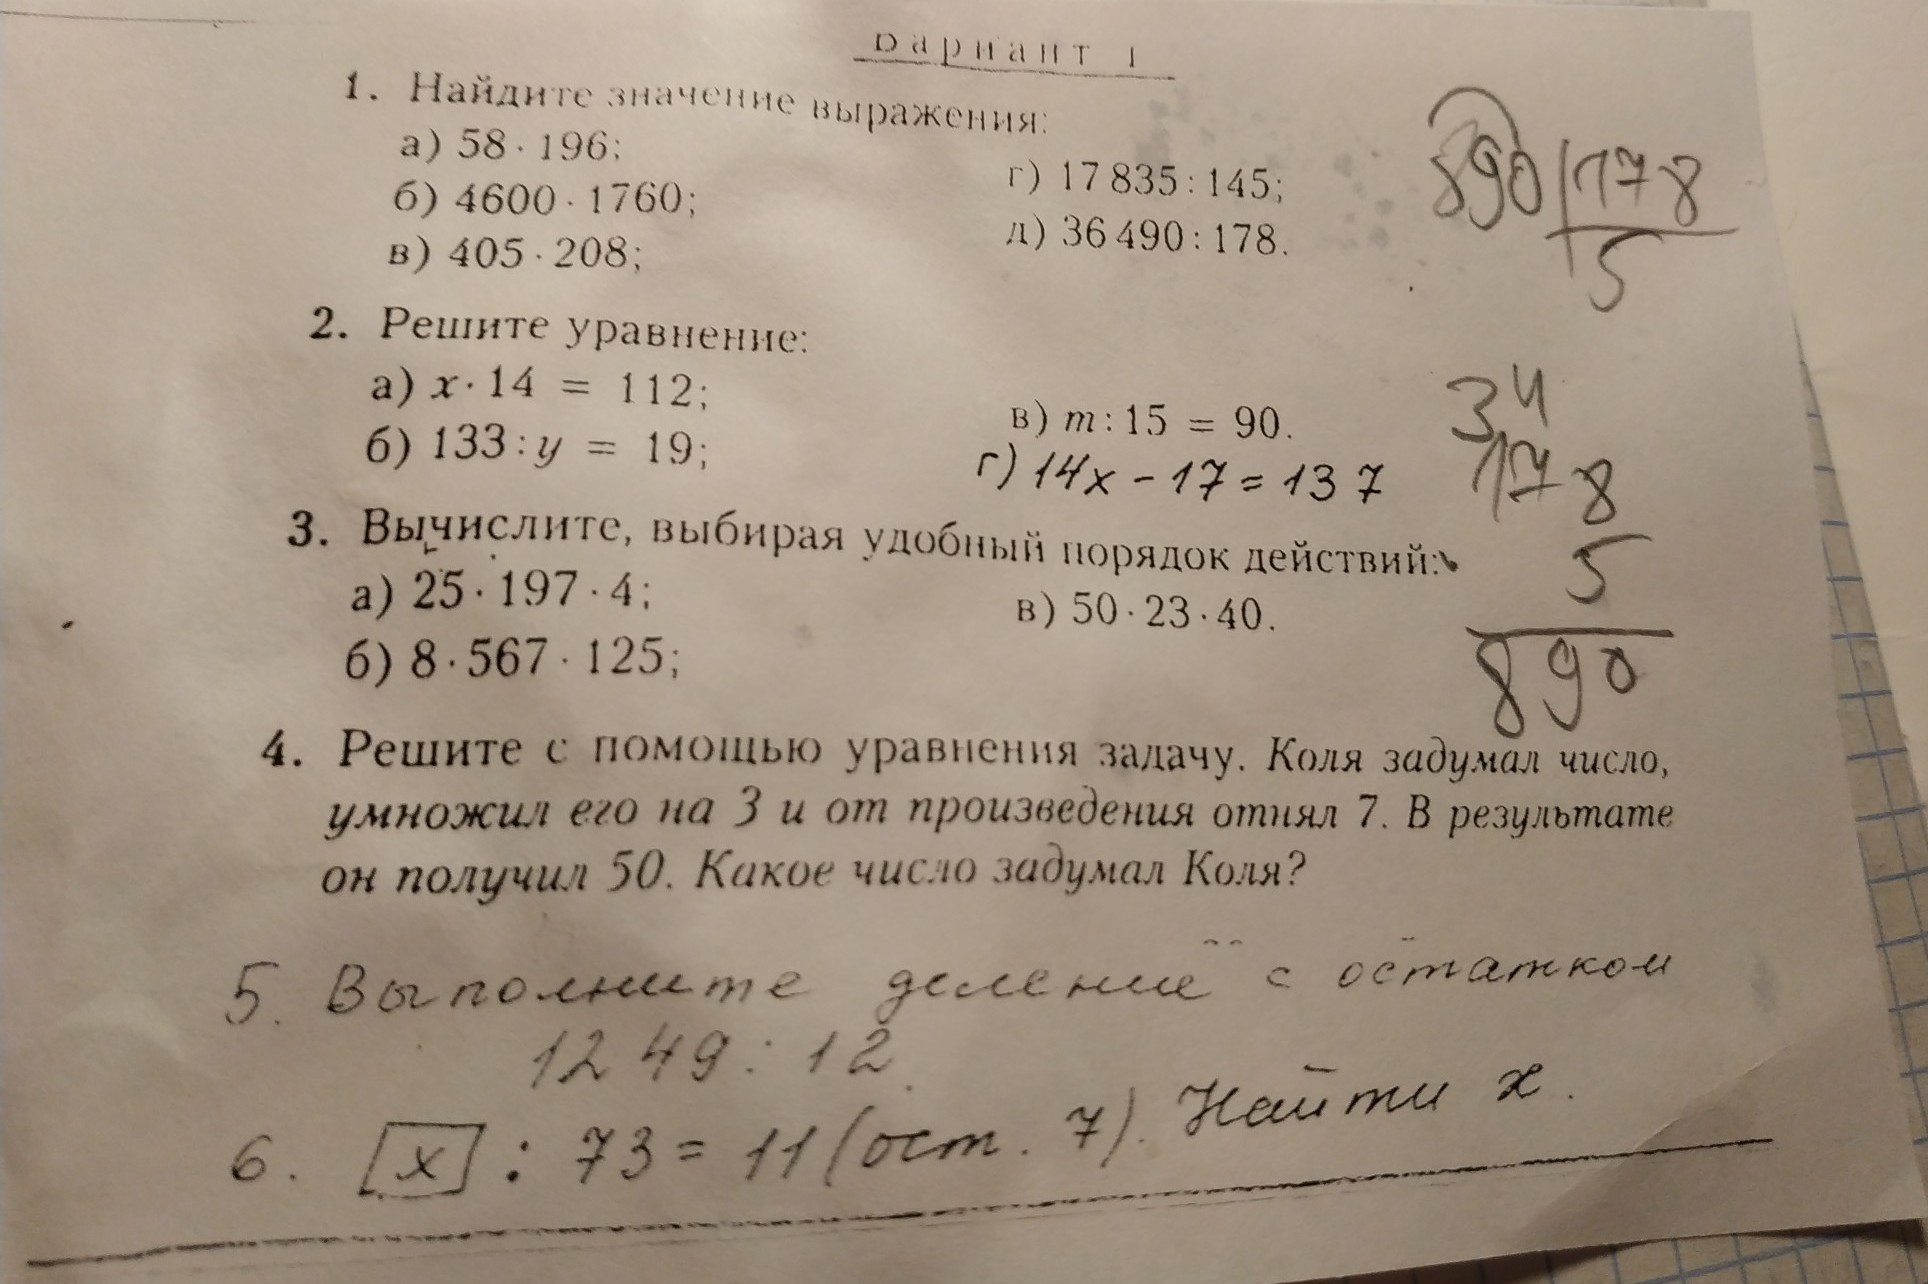 Вариант 1
1. Найдите значение выражения:
а) 58 · 196;
б) 4600 · 1760;
в) 405 · 208;
г) 17 835 : 145;
д) 36 490 : 178.
2. Решите уравнение:
а) x · 14 = 112;
б) 133 : y = 19;
в) m : 15 = 90.
г) 14x - 17 = 137
3. Вычислите, выбирая удобный порядок действий:
а) 25 · 197 · 4;
б) 8 · 567 · 125;
в) 50 · 23 · 40.
4. Решите с помощью уравнения задачу. Коля задумал число,
умножил его на 3 и от произведения отнял 7. В результате
он получил 50. Какое число задумал Коля?
5. Выполните деление с остатком
1249 : 12.
6. [x] : 73 = 11 (ост. 7). Найти x.
890 178
5
34
178
5
890